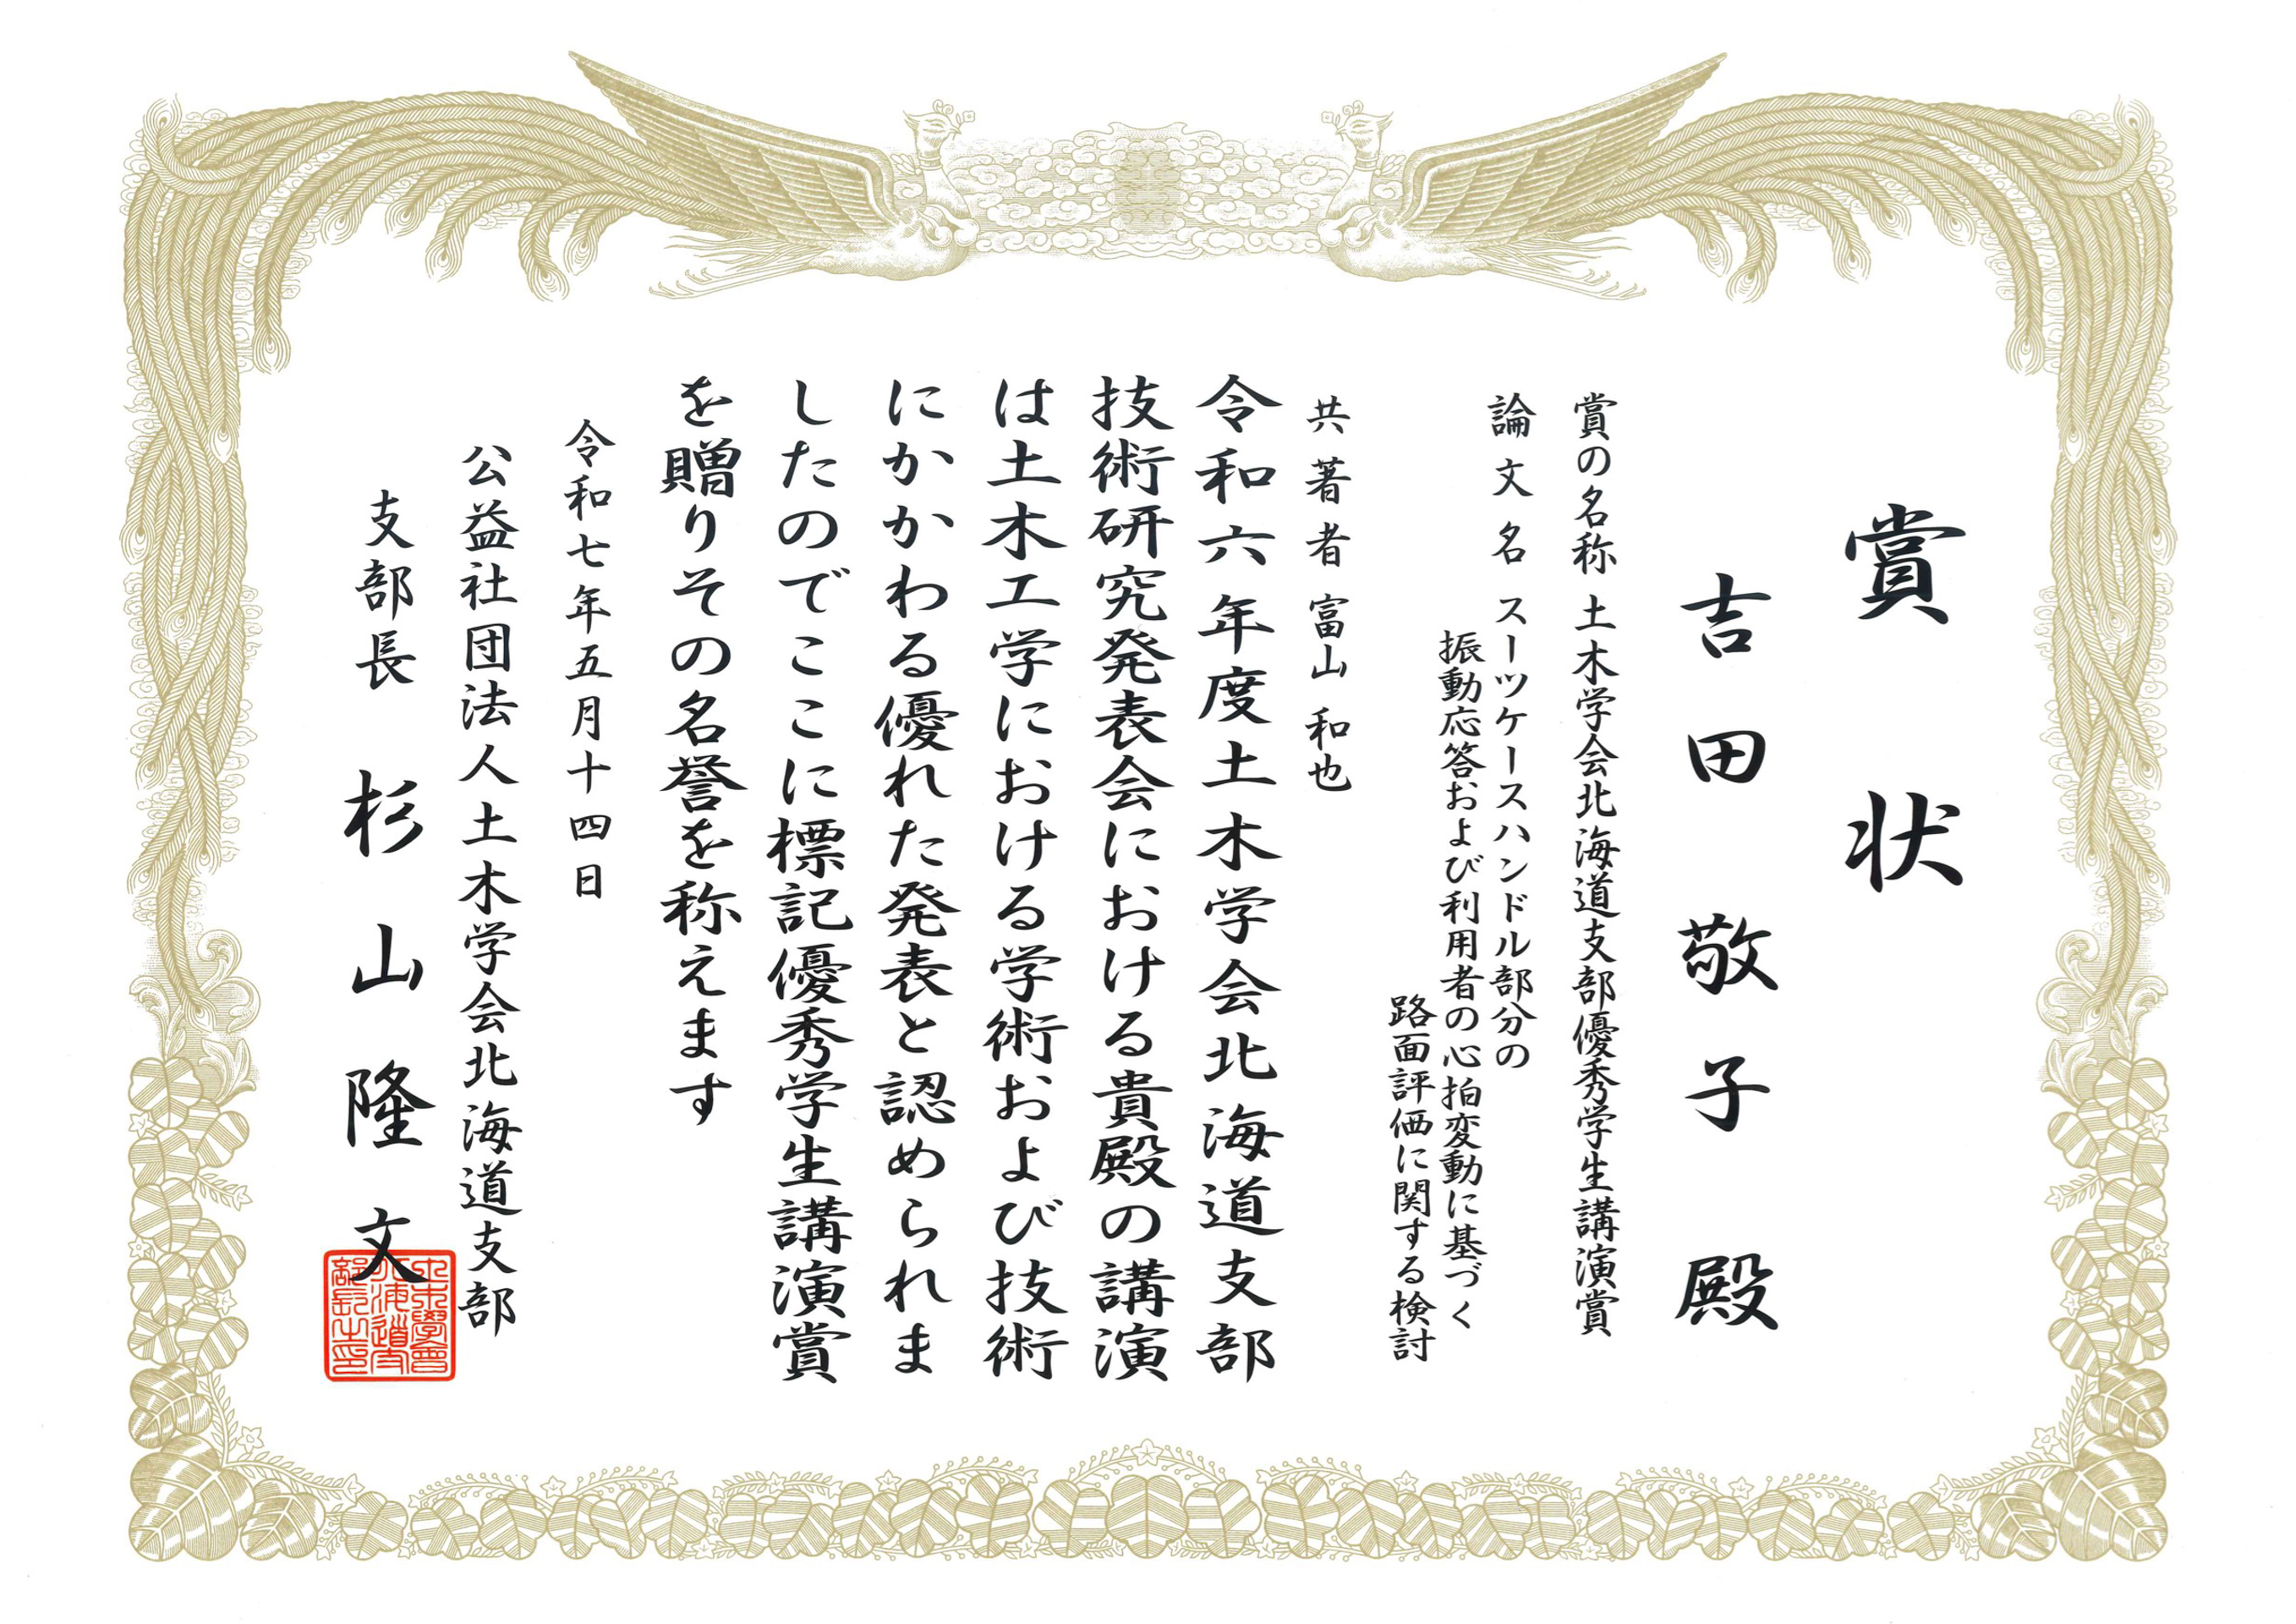 賞状
吉田敬子殿
賞の名称 土木学会北海道支部優秀学生講演賞
論文名 スーツケースハンドル部分の
振動応答および利用者の心拍変動に基づく
路面評価に関する検討
共著者 富山 和也
令和六年度土木学会北海道支部
技術研究発表会における貴殿の講演
は土木工学における学術および技術
にかかわる優れた発表と認められま
したのでここに標記優秀学生講演賞
を贈りその名誉を称えます
令和七年五月十四日
公益社団法人土木学会北海道支部
支部長 杉山隆文
土木學會
北海道支
部長之印